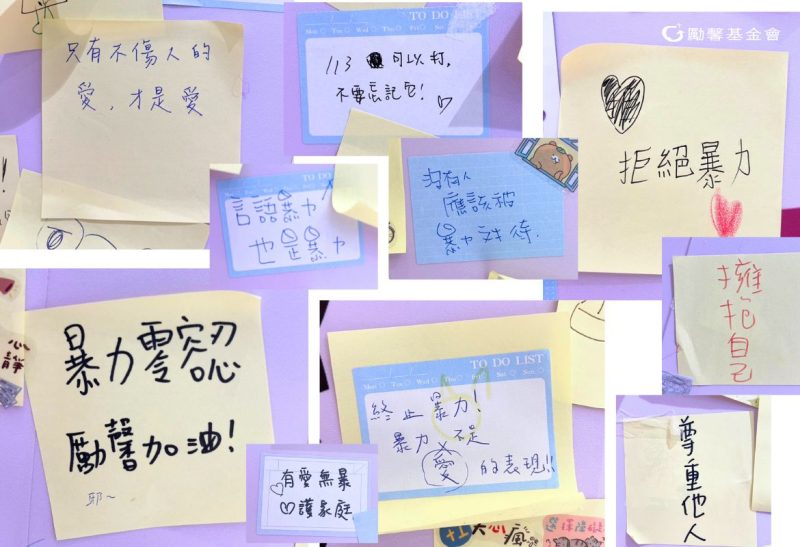 只有不傷人的
愛，才是愛
TO DO LIST
113 可以打，
不要忘記它！
勵馨基金會
拒絕暴力
TO DO LIST
言語暴力
也是暴力
沒有人
應該被
暴力對待.
擁抱自己
暴力零容忍
勵馨加油！
邪~
TO DO LIST
Mon Tue Wed Thu Fri Sat Sun
終止暴力！
暴力不是
愛的表現!!
有愛無暴
護家庭
尊重他人